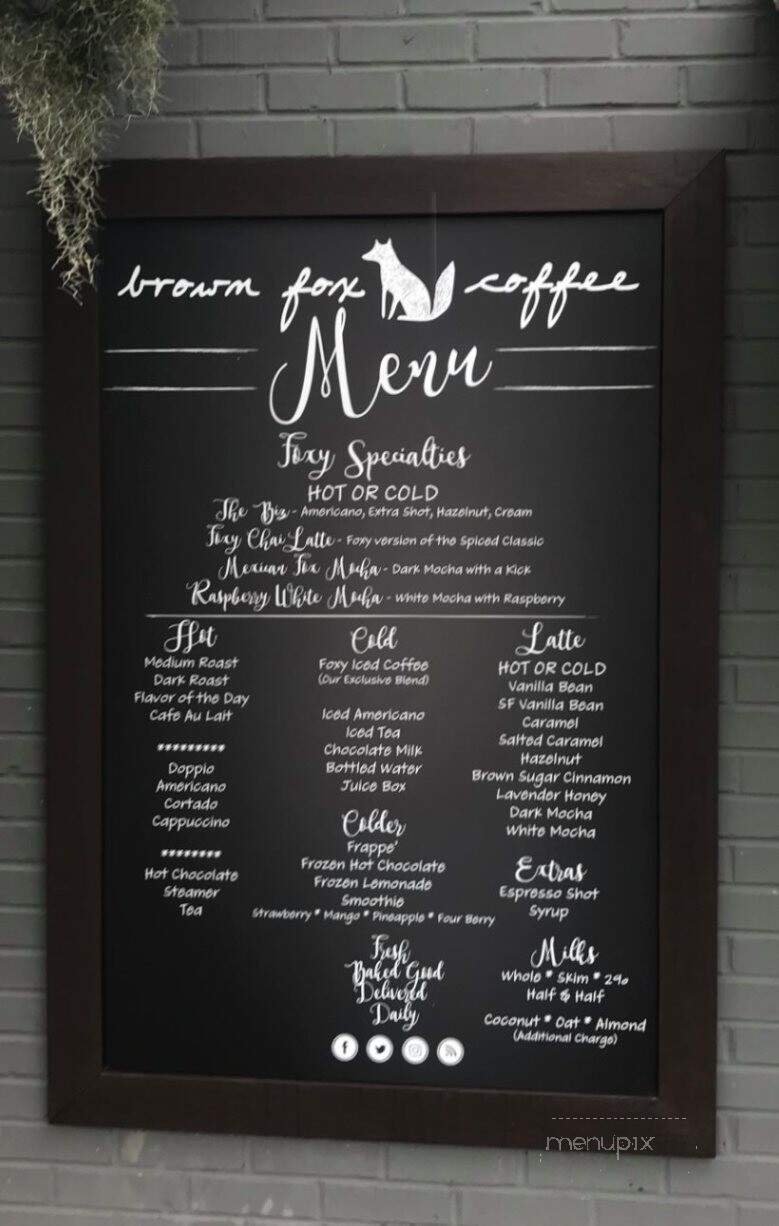 brown fox coffee
Menu
Foxy Specialties
HOT OR COLD
The Biz - Americano, Extra Shot, Hazelnut, Cream
Foxy Chai Latte - Foxy version of the Spiced Classic
Mexican Fox Mocha - Dark Mocha with a Kick
Raspberry White Mocha - White Mocha with Raspberry
Hot
Medium Roast
Dark Roast
Flavor of the Day
Cafe Au Lait
*********
Doppio
Americano
Cortado
Cappuccino
********
Hot Chocolate
Steamer
Tea
Cold
Foxy Iced Coffee
(Our Exclusive Blend)
Iced Americano
Iced Tea
Chocolate Milk
Bottled Water
Juice Box
Colder
Frappe'
Frozen Hot Chocolate
Frozen Lemonade
Smoothie
Strawberry * Mango * Pineapple * Four Berry
Latte
HOT OR COLD
Vanilla Bean
SF Vanilla Bean
Caramel
Salted Caramel
Hazelnut
Brown Sugar Cinnamon
Lavender Honey
Dark Mocha
White Mocha
Extras
Espresso Shot
Syrup
Fresh
Baked Good
Delivered
Daily
Milks
Whole * Skim * 2%
Half & Half
Coconut * Oat * Almond
(Additional Charge)
menupix